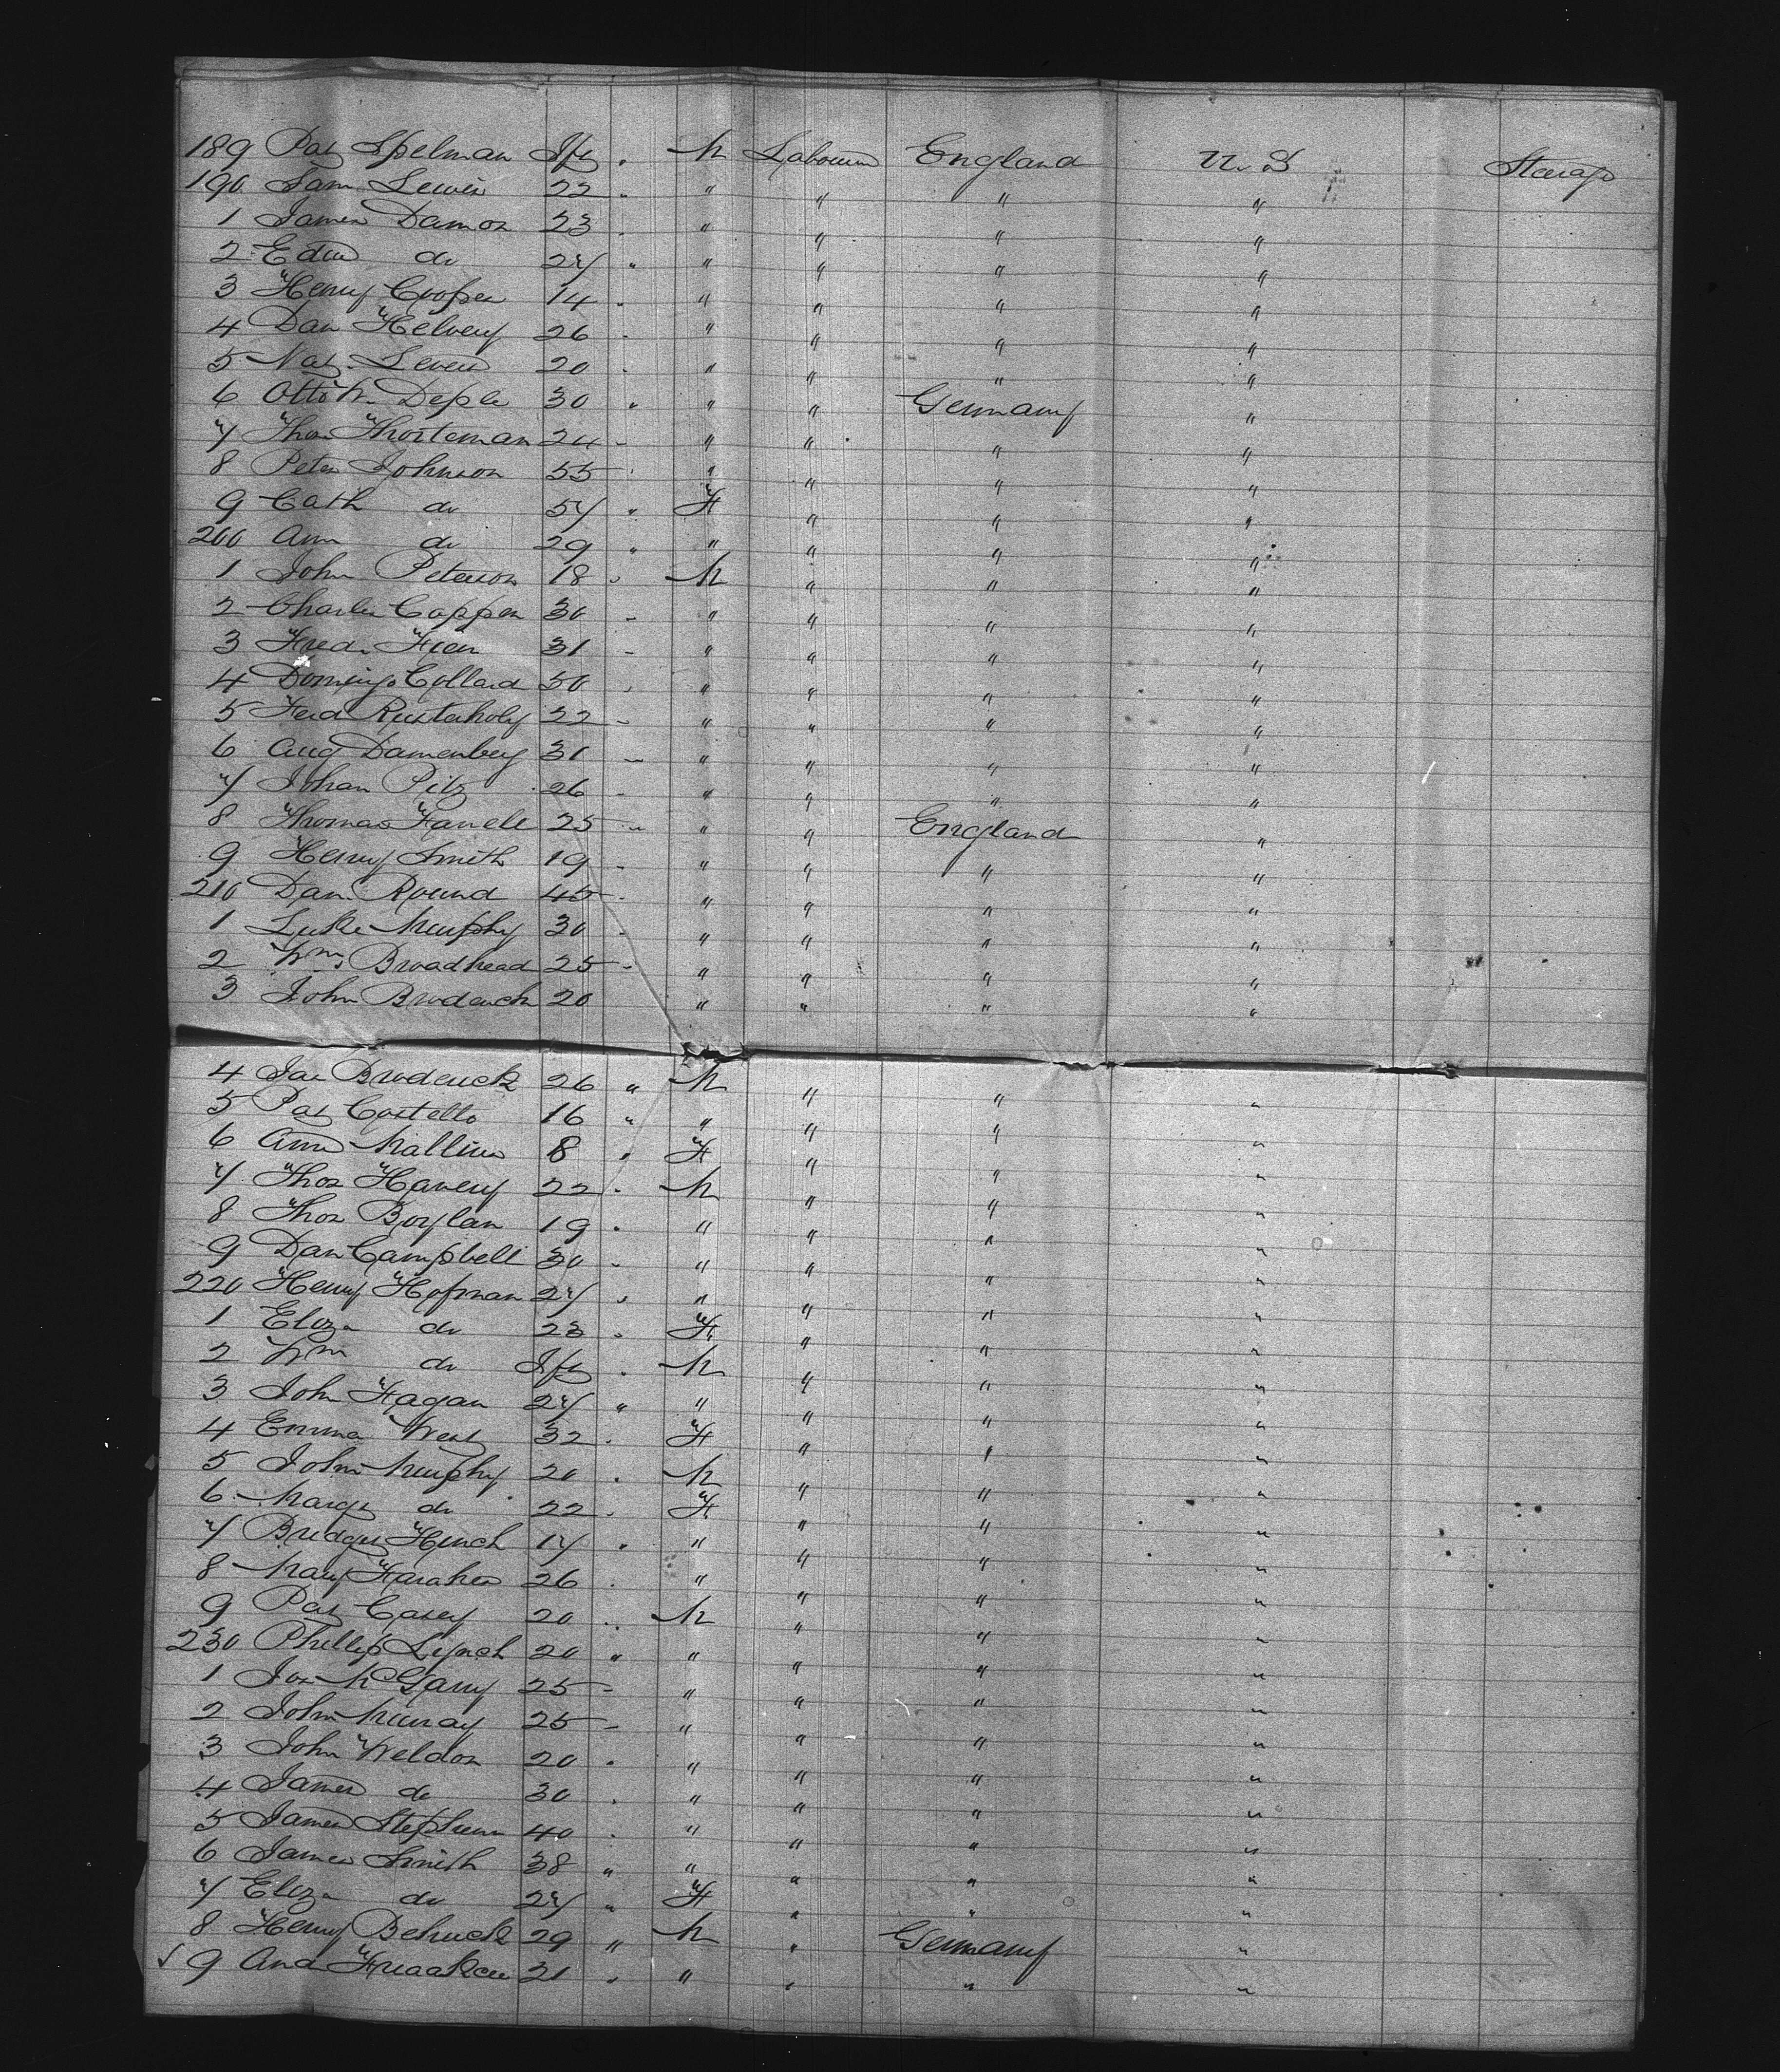 189 Pat Spelman Ify " M Labourer England U.S Steerage
190 Sam Lewis 22 " " " " "
1 James Damon 23 " " " " "
2 Edw do 27 " " " " "
3 Henry Cooper 14 " " " " "
4 Dan Helvey 26 " " " " "
5 Nat. Lewis 20 " " " " "
6 Otto W. Deple 30 " " " Germany "
7 Thos Thorteman 24 " " " " "
8 Peter Johnson 55 " " " " "
9 Cath do 57 " F " " "
200 Ann do 29 " " " " "
1 John Peterson 18 " M " " "
2 Charles Coppen 30 " " " " "
3 Fred. 31 " " " " "
4 Domingo Collard 50 " " " " "
5 Ferd Rustaholy 22 " " " " "
6 Aug Damenberg 31 " " " " "
7 Johan Pilz 26 " " " " "
8 Thomas Farrell 25 " " " England "
9 Henry Smith 19 " " " " "
210 Dan. Round 45 " " " " "
1 Luke Murphy 30 " " " " "
2 Wm Broadhead 25 " " " " "
3 John Broderick 20 " " " "
4 Jas Broderick 26 " M " " "
5 Pat Costello 16 " " " " "
6 Ann Mallins 8 " F " " "
7 Thos Havery 22 " M " " "
8 Thos Boylan 19 " " " " "
9 Dan Campbell 30 " " " " "
220 Henry Hofman 27 " " " " "
1 Eliza do 23 " F " " "
2 Wm do Ify " M " " "
3 John Fagan 27 " " " " "
4 Emma West 32 " F " " "
5 John Murphy 20 " M " " "
6 Margt do 22 " F " " "
7 Bridget Hynch 17 " " " " "
8 Mary Faraher 26 " " " " "
9 Pat Casey 20 " M " " "
230 Phillip Lynch 20 " " " " "
1 Jos McGarry 25 " " " " "
2 John Murray 25 " " " " "
3 John Weldon 20 " " " " "
4 James do 30 " " " " "
5 James Stephens 40 " " " " "
6 James Smith 38 " " " " "
7 Eliza do 27 " F " " "
8 Henry Behuck 29 " M " Germany "
9 And 21 " " " " "